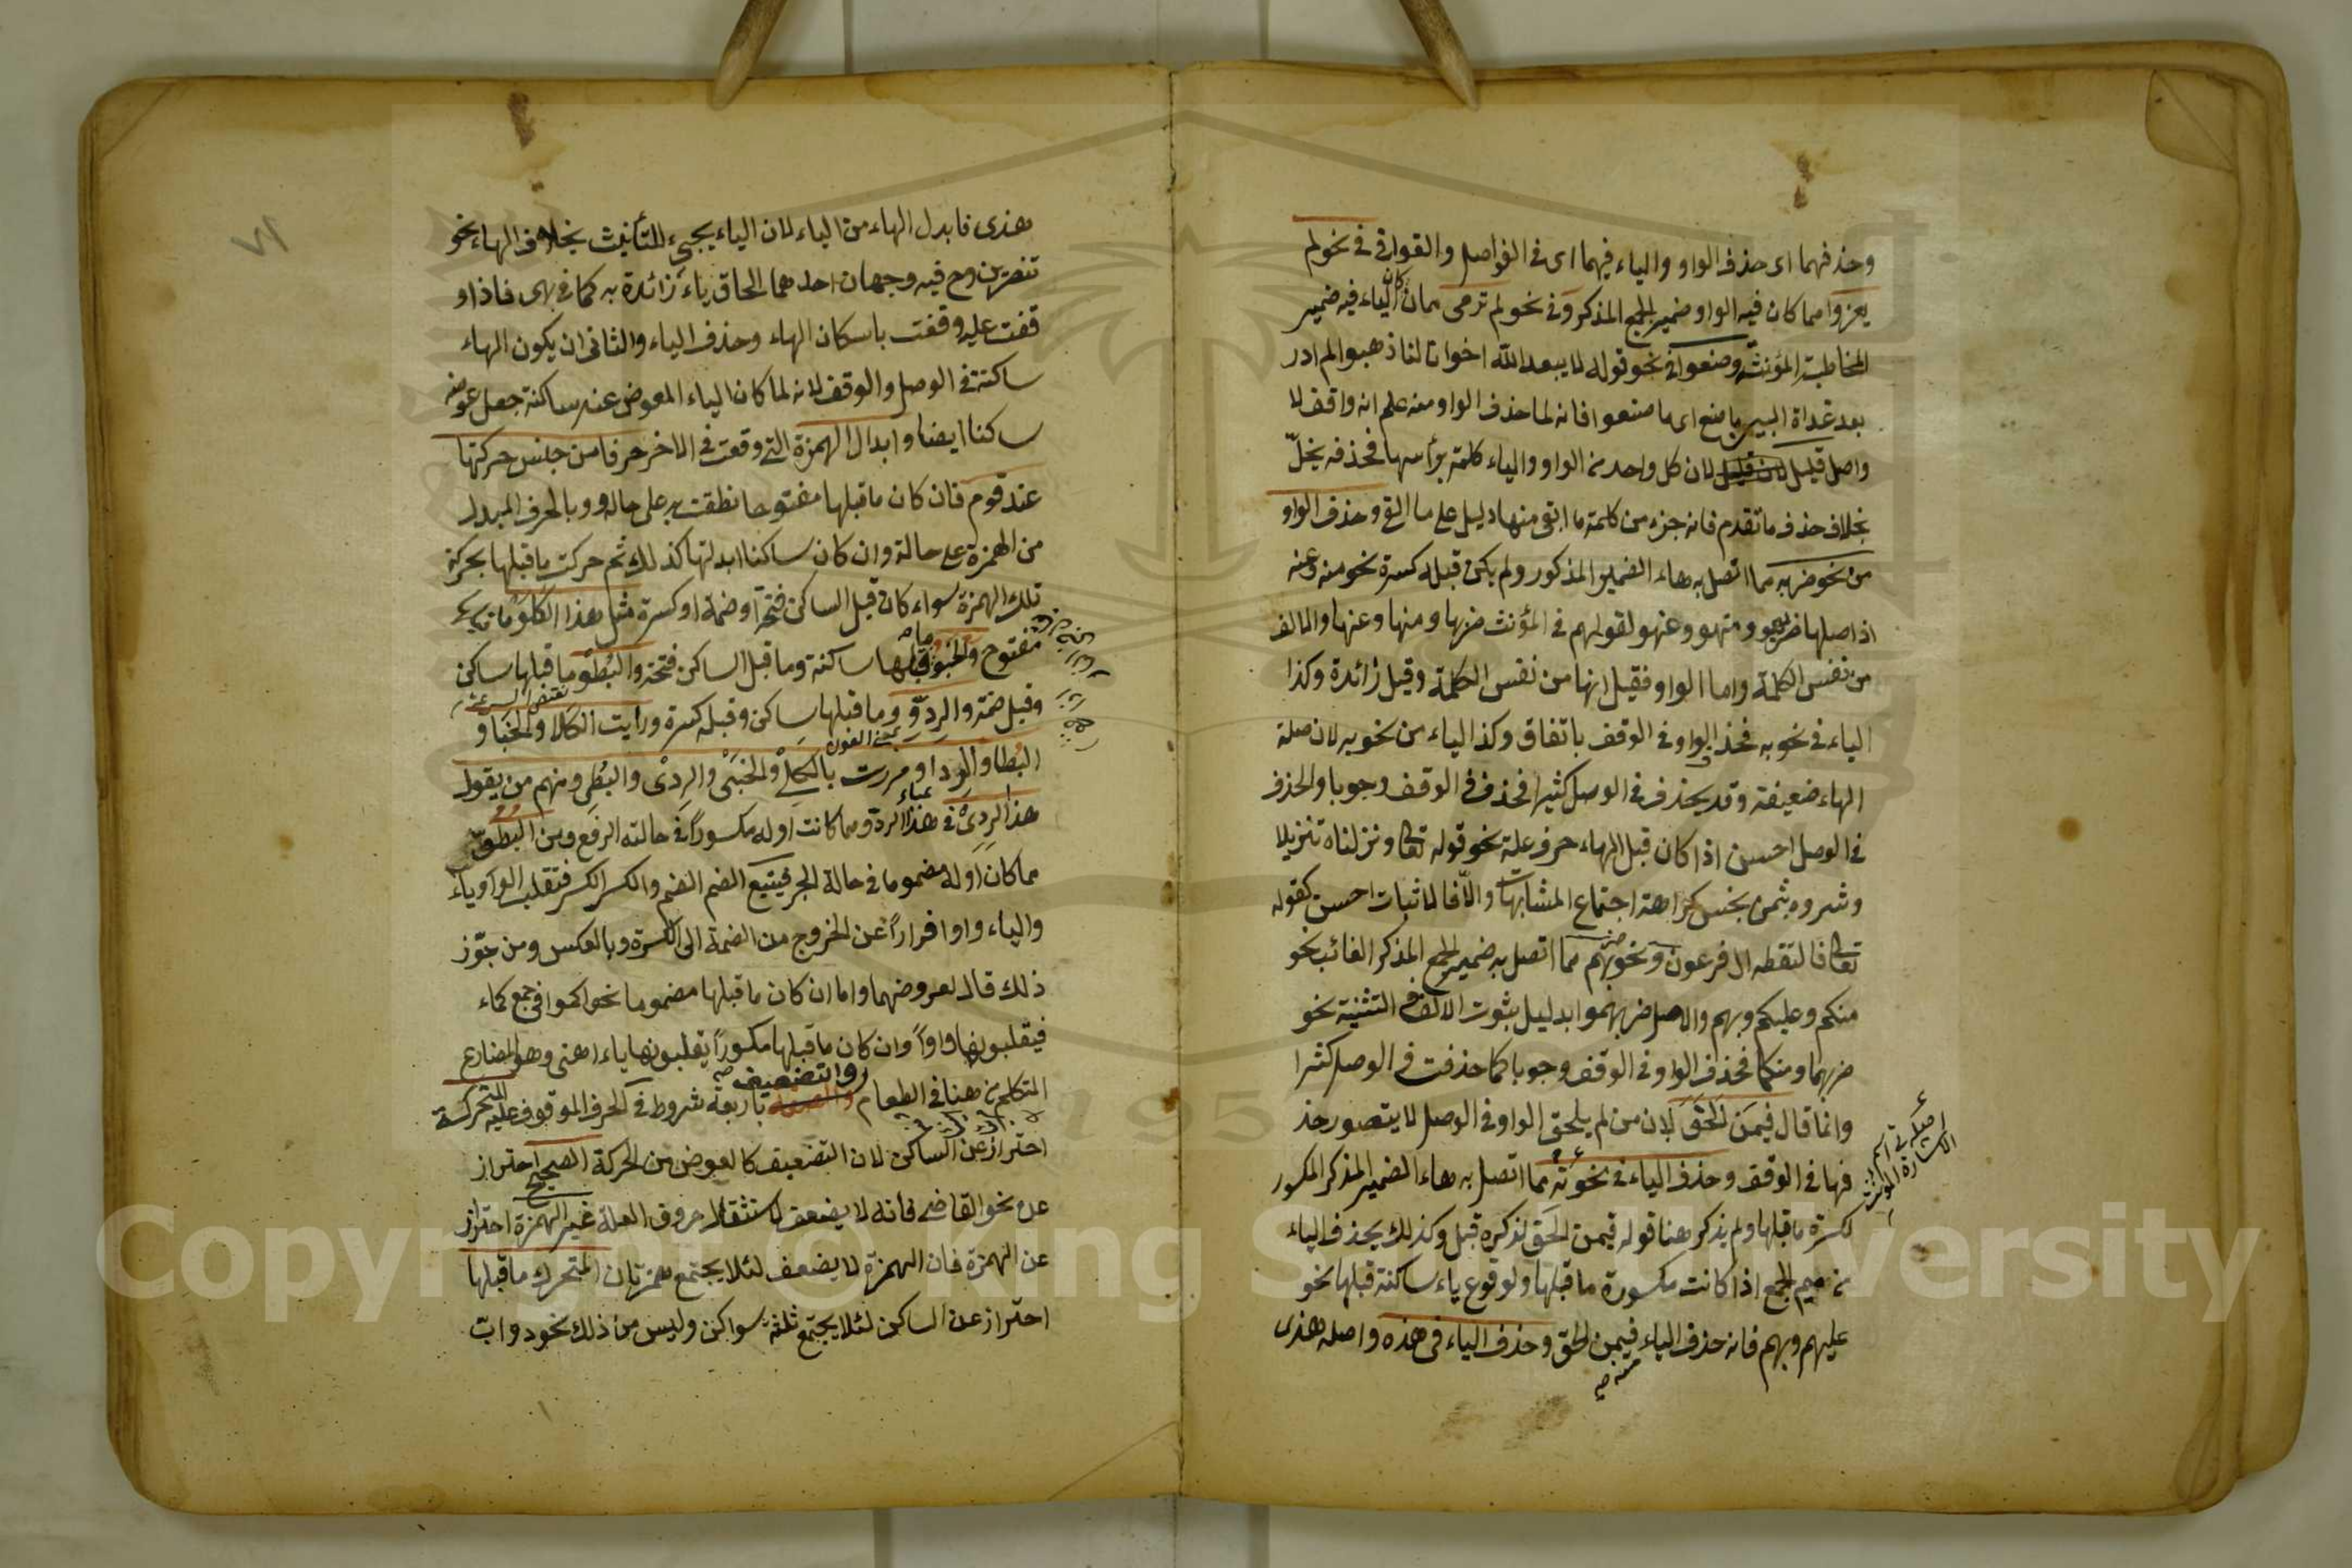 وحذفهما اى حذف الواو والياء فيهما اى فى الفواصل والقوافى فى نحو لم
يغزوا مما كان فيه الواو ضمير الجمع المذكر وفى نحو لم ترمى مما كان الياء فيه ضمير
المخاطبة المؤنثة وصنعوا فى نحو قوله لا يبعد الله اخوانا لنا ذهبوا لم ادر
بعد غداة البين ما صنع اى ما صنعوا فانه لما حذف الواو منه علم انه واقف لا
واصل قليل لان كل واحد من الواو والياء كلمة برأسها فحذفه يخلّ
بخلاف حذف ما تقدم فانه جزء من كلمة ما ابقى منها دليل على ما القى وحذف الواو
من نحو ضربه مما اتصل به هاء الضمير المذكور ولم يكن قبله كسرة نحو منه وعنه
اذ اصلها ضربهو ومنهو وعنهو لقولهم فى المؤنث ضربها ومنها وعنها والالف
من نفس الكلمة واما الواو فقيل انها من نفس الكلمة وقيل زائدة وكذا
الياء فى نحو به فحذف الواو فى الوقف باتفاق وكذا الياء من نحو به لان صلة
الهاء ضعيفة وقد يحذف فى الوصل كثيرا فحذف فى الوقف وجوبا والحذف
فى الوصل احسن اذا كان قبل الهاء حرف علة نحو قوله تعالى ونزلناه تنزيلا
وشروه بثمن بخس كراهة اجتماع المتشابهات والا فالاثبات احسن كقوله
تعالى فالتقطه ال فرعون ونحو ضربهم مما اتصل به ضمير الجمع المذكر الغائب نحو
منكم وعليكم وبهم والاصل ضربهموا بدليل بثوت الالف فى التثنية نحو
ضربهما ومنكما فحذف الواو فى الوقف وجوبا كما حذفت فى الوصل كثيرا
وانما قال فيمن لحق لان من لم يلحق الواو فى الوصل لا يتصور حذ
فها فى الوقف وحذف الياء فى نحو ته مما اتصل به هاء الضمير المذكر المكسور
لكسرة ما قبلها ولم يذكر هنا قوله فيمن الحق لذكره قبل وكذلك يحذف الياء
من ميم الجمع اذا كانت مكسورة ما قبلها ولوقوع ياء ساكنة قبلها نحو
عليهم وبهم فانه حذف الياء فيمن لحق وحذف الياء فى هذه واصله هذى
منه صح
اصله تى اسم
الاشارة المؤنث
٧١
هذى فابدل الهاء من الياء لان الياء يجيء للتأنيث بخلاف الهاء نحو
تنصرين وح فيه وجهان احدهما الحاق ياء زائدة به كما فى بهى فاذا و
قفت عليه وقفت باسكان الهاء وحذف الياء والثانى ان يكون الهاء
ساكنة فى الوصل والوقف لانه لما كان الياء المعوض عنه ساكنة جعل عوضه
ساكنا ايضا وابدال الهمزة التى وقعت فى الاخر حرفا من جنس حركتها
عند قوم فان كان ما قبلها مفتوحا نطقت به على حاله وبالحرف المبدل
من الهمزة على حالة وان كان ساكنا ابدلتها كذلك ثم حركت ما قبلها بحركة
تلك الهمزة سواء كان قبل الساكن فتحة او ضمة او كسرة مثل هذا الكلو ما قبله
مفتوح والخبو ما قبلها ساكنة وما قبل الساكن فتحة والبطو ما قبلها ساكن
وقبل ضمة والردو وما قبلها ساكن وقبله كسرة ورايت الكلا والخبا و
نقيض السرعة
البطا والردا ومررت بالكلى والخبى والردى والبطى ومنهم من يقول
بمعنى العون
هذا الردى فى هذا الردو مما كانت اوله مكسورا فى حالته الرفع ومن البطو
مما كان اوله مضموما فى حالة الجر فيتبع الضم الضم والكسر الكسر فتقلب الواو ياء
والياء واوا فرارا عن الخروج من الضمة الى الكسرة وبالعكس ومن جوّز
ذلك قال لعروضهما واما ان كان ما قبلها مضموما نحو اكموا فى جمع كماء
فيقلبونها واوا وان كان ما قبلها مكسورا يقلبونها ياء اهنى وهو المضارع
المتكلم من هنا فى الطعام والتضعيف باربعة شروط فى الحرف الموقوف عليه المتحركة
احتراز عن الساكن لان التضعيف كالعوض من الحركة الصحيح احتراز
عن نحو القاضى فانه لا يضعف لاستثقال حروف العلة غير الهمزة احتراز
عن الهمزة فان الهمزة لا يضعف لئلا يجتمع همزتان المتحرك ما قبلها
احتراز عن الساكن لئلا يجتمع ثلثة سواكن وليس من ذلك نحو دوابّ
Copyright © King Saud University